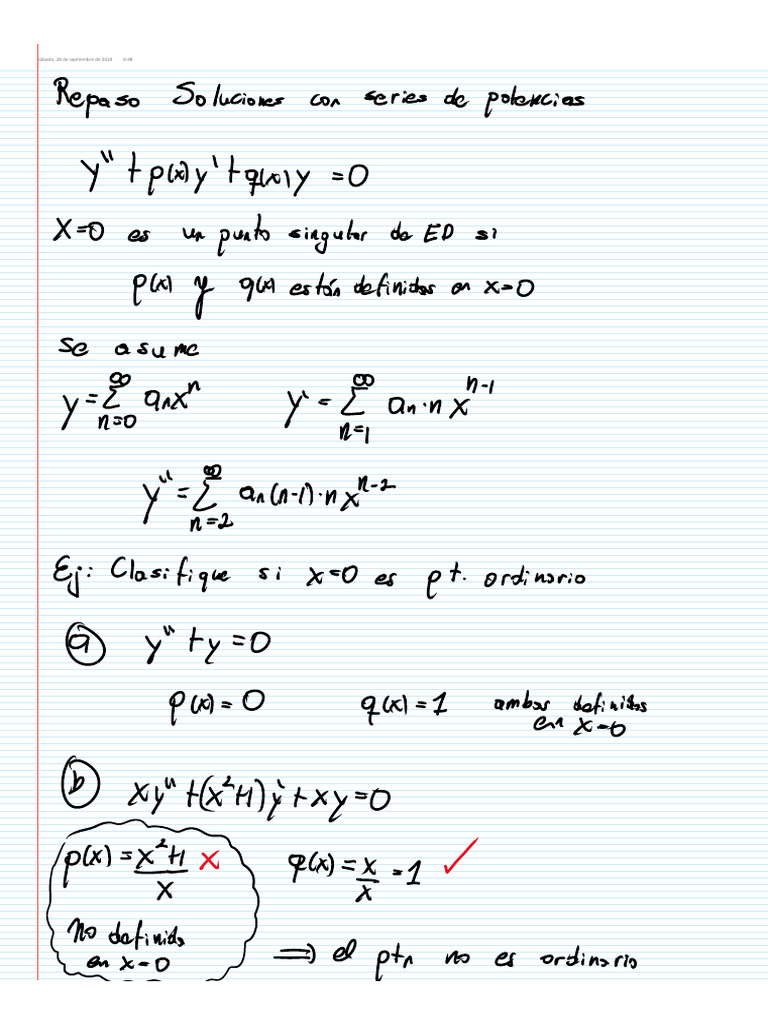 sábado, 28 de septiembre de 2024 9:48
Repaso Soluciones con series de potencias
y'' + p(x)y' + q(x)y = 0
x=0 es un punto singular de ED si
p(x) y q(x) están definidas en x=0
Se asume
y = ∑_{n=0}^{∞} aₙxⁿ y' = ∑_{n=1}^{∞} aₙ·n x^{n-1}
y'' = ∑_{n=2}^{∞} aₙ(n-1)·n x^{n-2}
Ej: Clasifique si x=0 es pt. ordinario
ⓐ y'' + y = 0
p(x) = 0 q(x) = 1 ambas definidas
en x=0
ⓑ xy'' + (x²+1)y' + xy = 0
p(x) = (x²+1)/x x q(x) = x/x = 1 ✓
No definida
en x=0
⟹ el pto no es ordinario